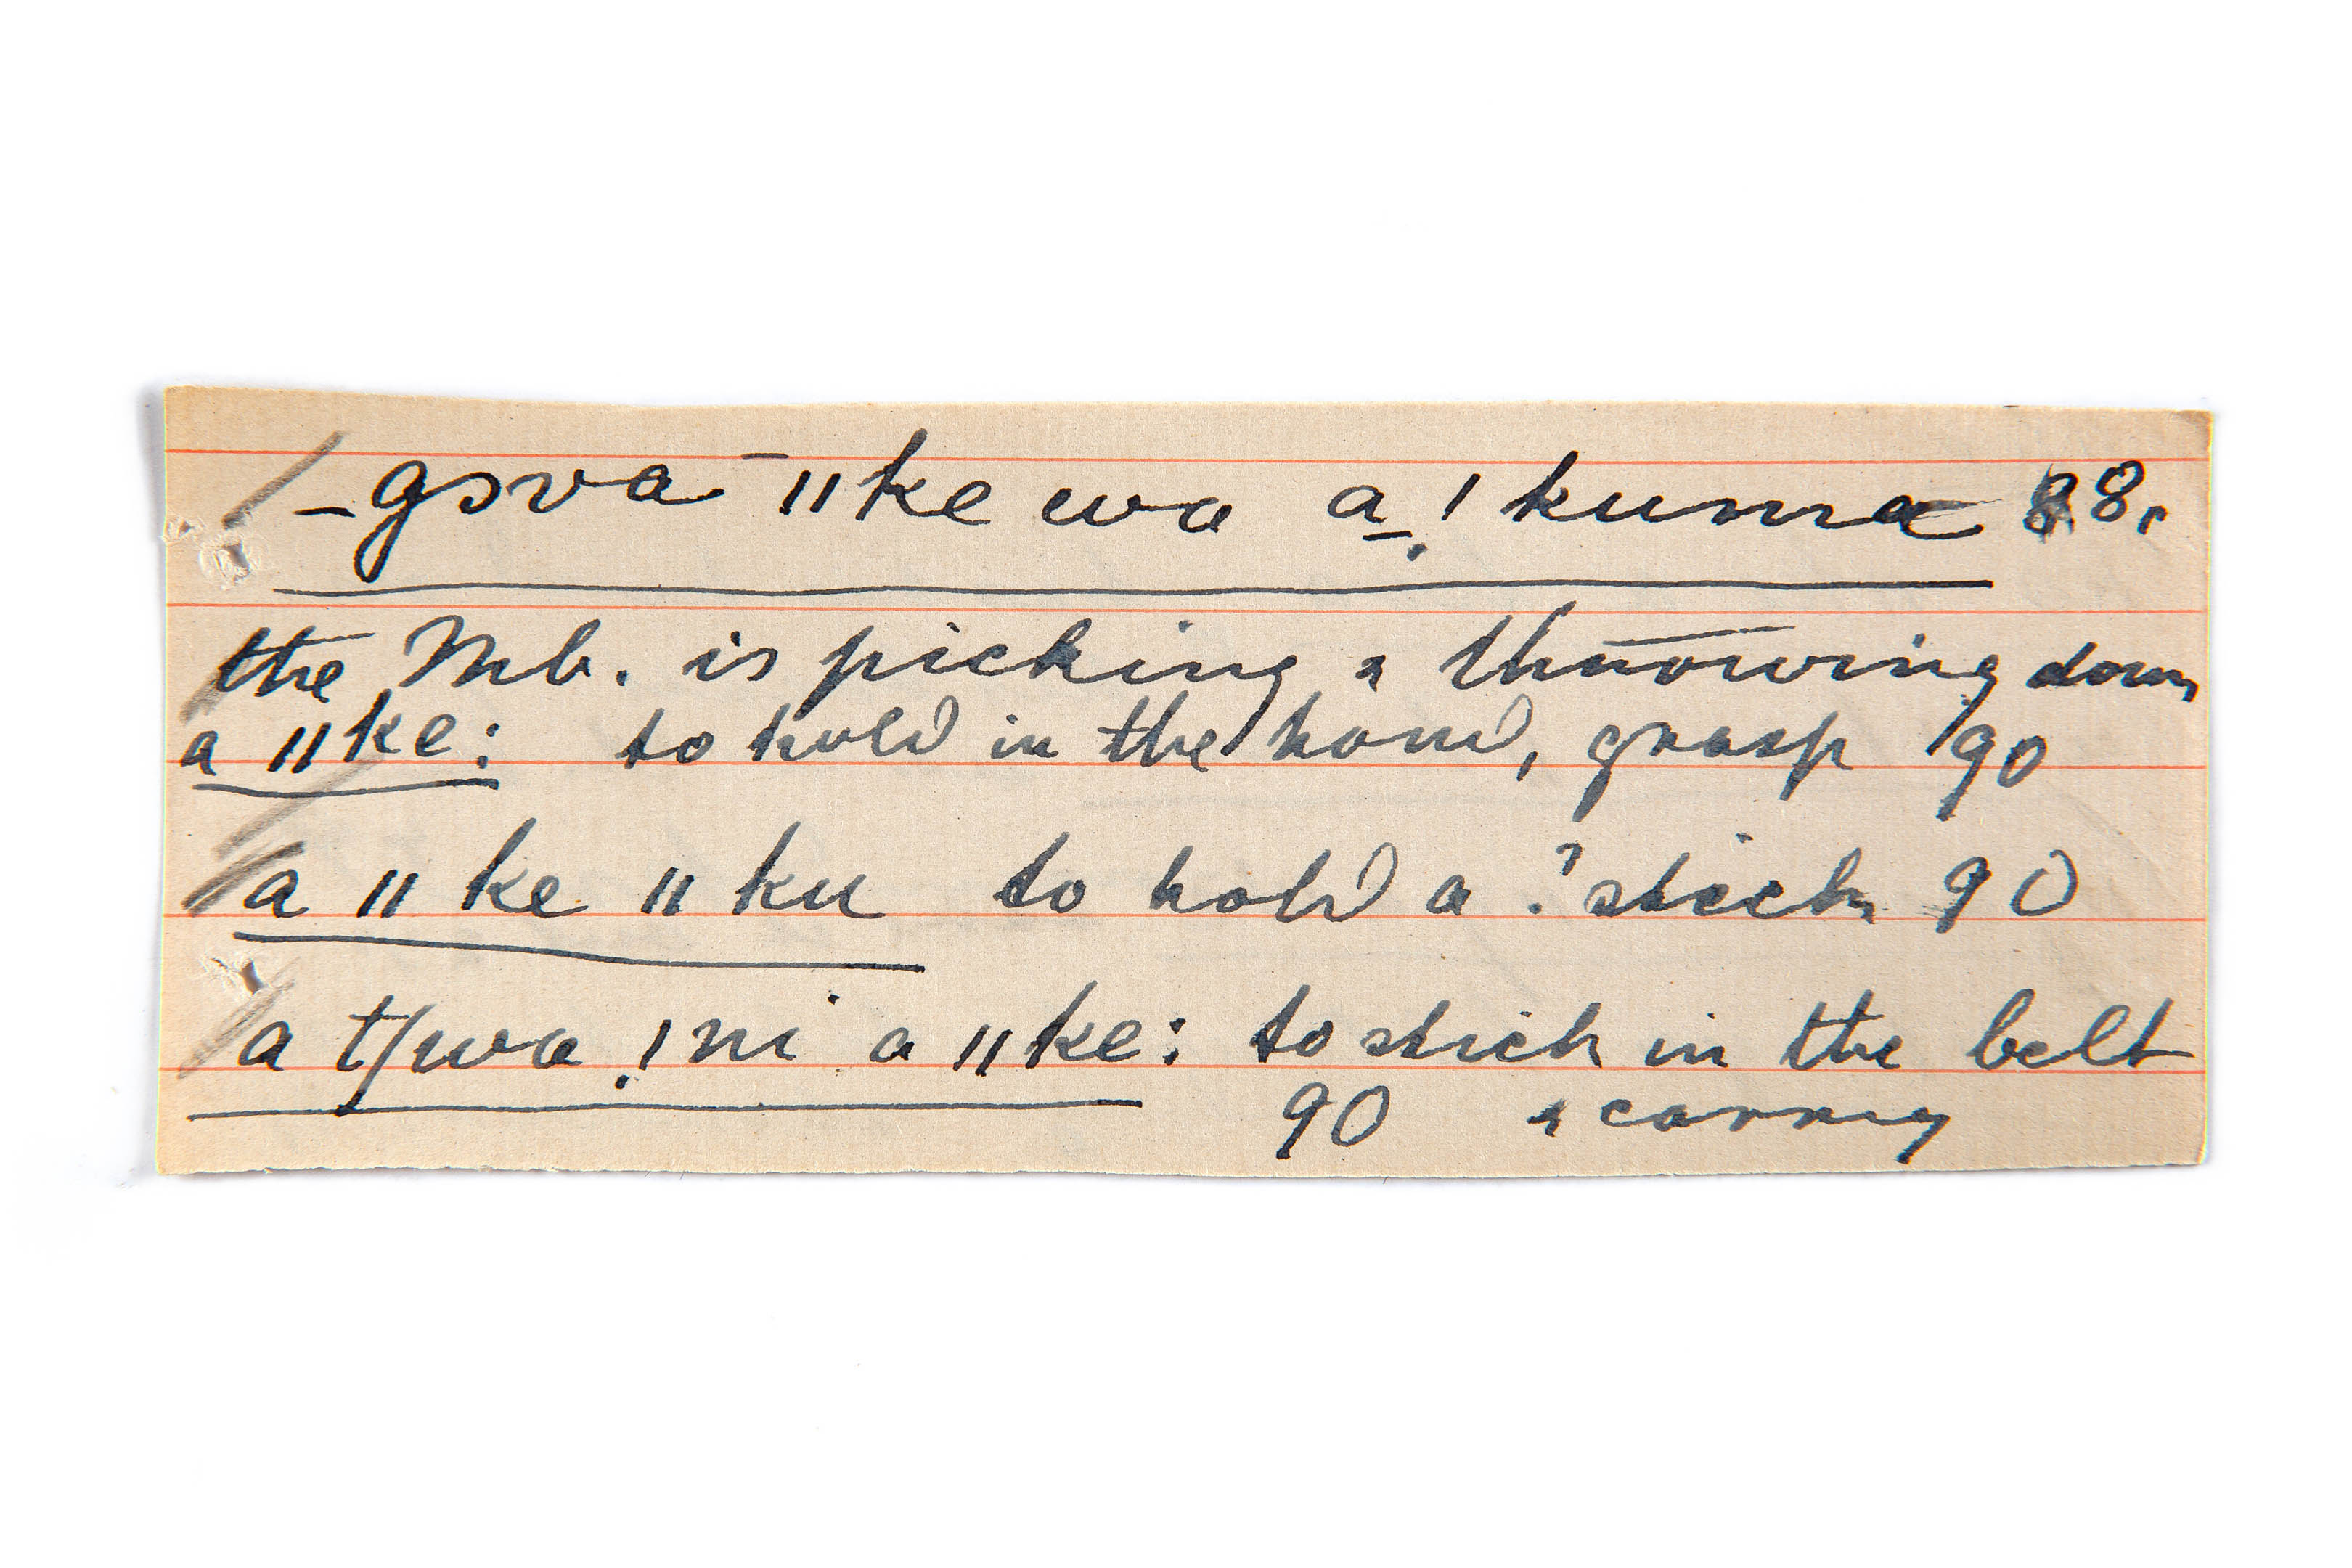 _gɔva ‾ǁke wa a̱ ǃkuma 88,
the Mb. is picking & throwing down
a ǁke: to hold in the hand, grasp 90
a ǁke ǁku to hold a ? stick 90
a tʃwa ǃni a ǁke: to stick in the belt
90 & carry